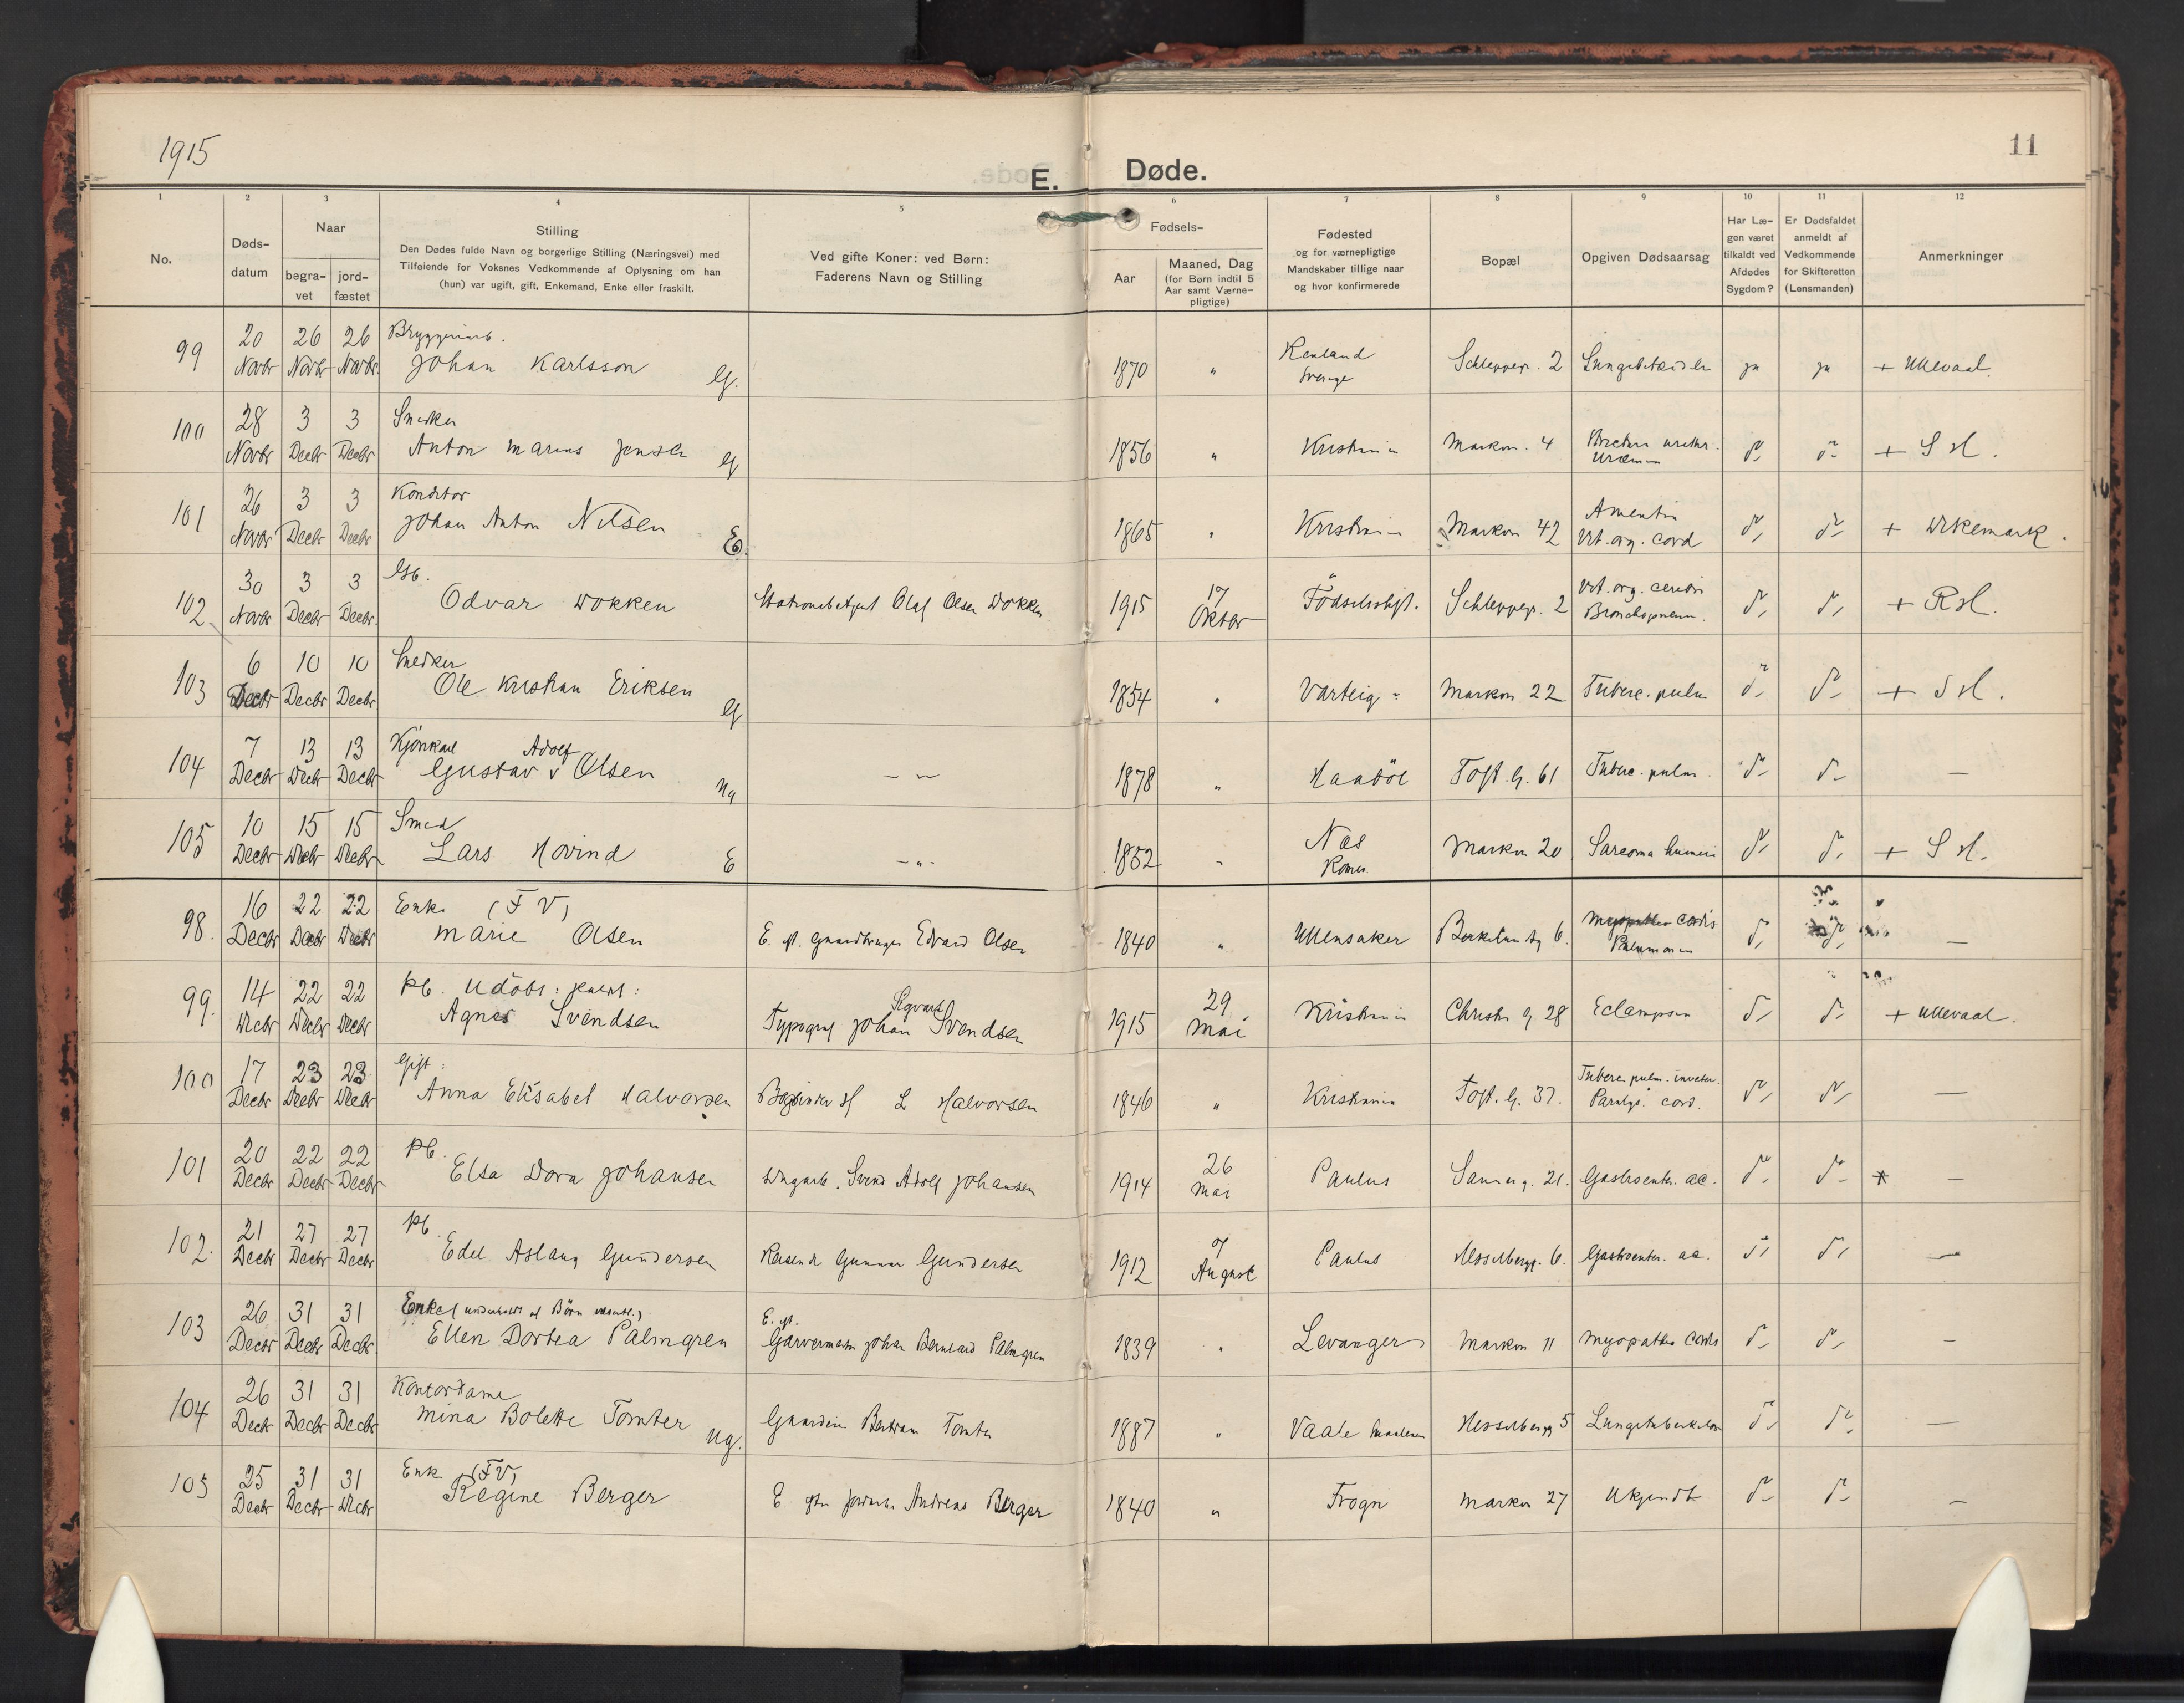 1915
11
E. Døde.
1 2 3 4 5 6 7 8 9 10 11 12
No.
Døds-
datum
Naar
begra-
vet
jord-
fæstet
Stilling
Den Dødes fulde Navn og borgerlige Stilling (Næringsvei) med
Tilføiende for Voksnes Vedkommende af Oplysning om han
(hun) var ugift, gift, Enkemand, Enke eller fraskilt.
Ved gifte Koner: ved Børn:
Faderens Navn og Stilling
Fødsels-
Aar
Maaned, Dag
(for Børn indtil 5
Aar samt Værne-
pligtige)
Fødested
og for værnepligtige
Mandskaber tillige naar
og hvor konfirmerede
Bopæl
Opgiven Dødsaarsag
Har Læ-
gen været
tilkaldt ved
Afdødes
Sygdom?
Er Dødsfaldet
anmeldt af
Vedkommende
for Skifteretten
(Lensmanden)
Anmerkninger
99 20 26 26 Bryggeriarb.
Novbr Novbr Novbr Johan Karlsson G. 1870 " Sverige Schleppegr. 2 ja ja + Ullevaal.
100 28 3 3 Snedker
Novbr Decbr Decbr Anton Marius Jensen G 1856 " Kristiania Markvn. 4 do do + S H.
101 26 3 3 Konditor
Novbr Decbr Decbr Johan Anton Nilsen E. 1865 " Kristiania Markvn 42 Amentia
Vit. org. cord do do + Dikemark.
102. 30 3 3
Novbr Decbr Decbr Odvar Dokken Stationsbetjent Olaf Olsen Dokken 1915 17
Oktbr Fødselsstift. Schleppegr. 2 Vit. org. cordis
Bronchopneum. do do + RH.
103 6 10 10 Snedker
Decbr Decbr Decbr Ole Kristian Eriksen G 1854 " Varteig Markvn 22 Tuberc. pulm do do + S H.
104 7 13 13 Kjørekarl Adolf
Decbr Decbr Decbr Gustav v Olsen Ug — " — 1878 " Haabøl Toft. G. 61 Tuberc. pulm. do do —
105 10 15 15 Smed
Decbr Decbr Decbr Lars Hovind E — " — 1852 " Nes
Romer. Markvn 20 Sarcoma humeri do do + S H.
98. 16 22 22 Enke (F V)
Decbr Decbr Decbr Marie Olsen E. ef. Gaardbruger Edvard Olsen 1840 " Ullensaker 6. Myopathia cordis
do do —
99. 14 22 22 Pb.
Decbr Decbr Decbr Agnes Svendsen Typograf Johan Sigvard Svendsen 1915 29
Mai Kristiania Christies g 28 Eclampsia do do + Ullevaal.
100 17 23 23 Gift:
Decbr Decbr Decbr Anna Elisabet Halvorsen Bogbinder H L Halvorsen 1846 " Kristiania Toft. G. 37. Tuberc. pulm. inveter.
Paralys. cord. do do —
101 20 22 22 Pb.
Decbr Decbr Decbr Elsa Dora Johansen Svend Adolf Johansen 1914 26
Mai Paulus Sannerg. 21. Gastroenter. ac. do do —
102. 21 27 27 Pb.
Decbr Decbr Decbr Edel Aslaug Gundersen Gunnar Gundersen 1912 7
August Paulus Hesselbergg. 6. Gastroenter. ac. do do —
103 26 31 31 Enke (underholdt af Børn )
Decbr Decbr Decbr Ellen Dortea Palmgren E. ef.
Garvermester Johan Bernhard Palmgren 1839 " Levanger Markvn 11 Myopathia cordis do do —
104 26 31 31 Kontordame
Decbr Decbr Decbr Mina Bolette Tomter Ug. Gaardeier Bertram Tomter 1887 " Vaale Hesselbergg 5 Lungetuberkulose do do —
105 25 31 31 Enke (FV)
Decbr Decbr Decbr Regine Berger E. efter Andreas Berger 1840 " Frogn Markvn 27 Ukjendt do do —